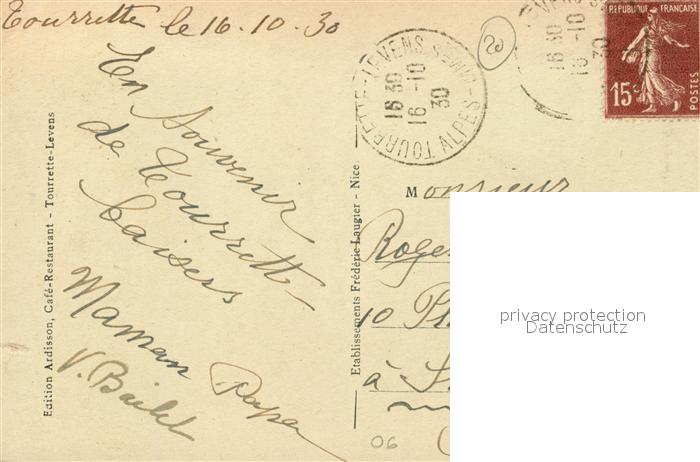 Tourrette le 16.10.30
En Souvenir
de Tourrette
baisers
Maman Papa
V. Bailet
Edition Ardisson, Café-Restaurant - Tourrette-Levens
Etablissements Frédéric Laugier - Nice
TOURRETTE-LEVENS
ALPES-MMES
16 30
16 -10
30
20
EVENS
16 30
16 -10
30
REPUBLIQUE FRANÇAISE
15c
POSTES
Monsieur
Roge
10 Pl
à S
06
privacy protection
Datenschutz